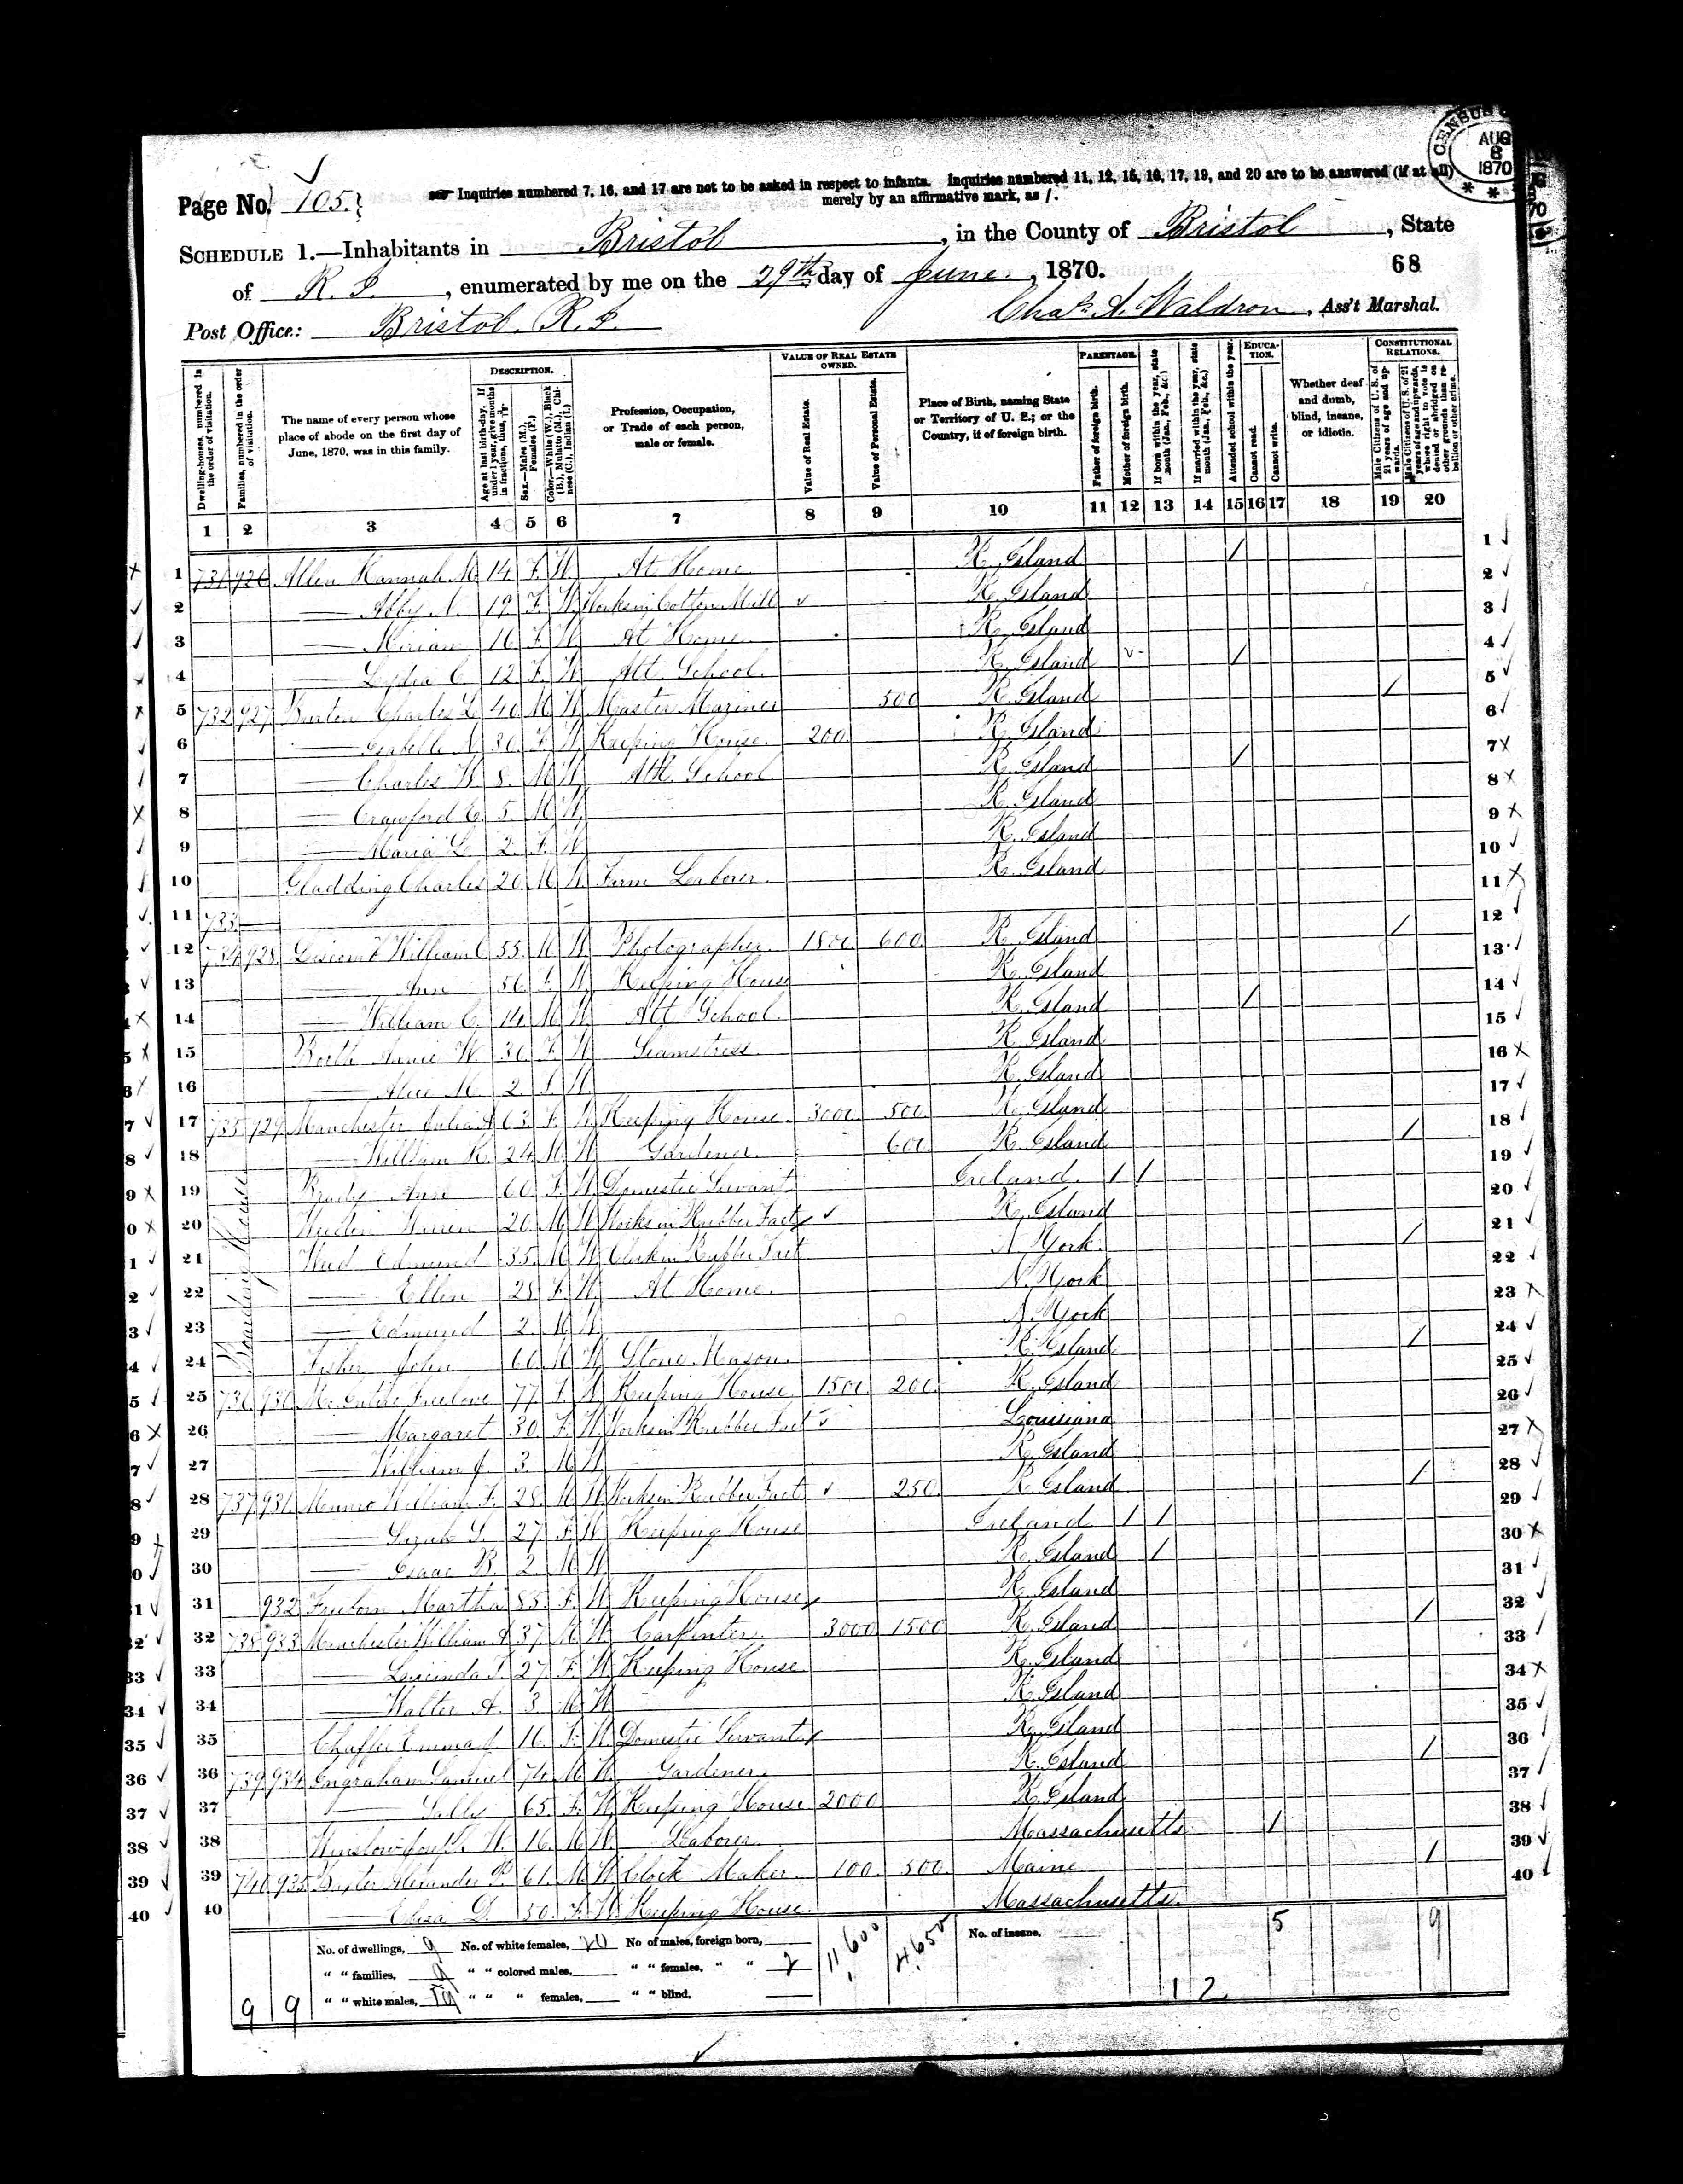 CENSUS
AUG
8
1870
Page No. 105.
Inquiries numbered 7, 16, and 17 are not to be asked in respect to infants. Inquiries numbered 11, 12, 15, 16, 17, 19, and 20 are to be answered (if at all)
merely by an affirmative mark, as /.
SCHEDULE 1.—Inhabitants in Bristol, in the County of Bristol, State
of R. I., enumerated by me on the 29th day of June, 1870.
68
Post Office: Bristol, R. I.
Chas. A. Waldron, Ass't Marshal.
Dwelling-houses, numbered in the order of visitation.
Families, numbered in the order of visitation.
The name of every person whose place of abode on the first day of June, 1870, was in this family.
DESCRIPTION.
Age at last birth-day. If under 1 year, give months in fractions, thus, 3/12.
Sex.—Males (M.), Females (F.)
Color.—White (W.), Black (B.), Mulatto (M.), Chinese (C.), Indian (I.)
Profession, Occupation, or Trade of each person, male or female.
VALUE OF REAL ESTATE OWNED.
Value of Real Estate.
Value of Personal Estate.
Place of Birth, naming State or Territory of U. S.; or the Country, if of foreign birth.
PARENTAGE.
Father of foreign birth.
Mother of foreign birth.
If born within the year, state month (Jan., Feb., &c.)
If married within the year, state month (Jan., Feb., &c.)
Attended school within the year.
EDUCATION.
Cannot read.
Cannot write.
Whether deaf and dumb, blind, insane, or idiotic.
CONSTITUTIONAL RELATIONS.
Male Citizens of U. S. of 21 years of age and upwards.
Male Citizens of U. S. of 21 years of age and upwards, whose right to vote is denied or abridged on other grounds than rebellion or other crime.
1 2 3 4 5 6 7 8 9 10 11 12 13 14 15 16 17 18 19 20
1 731 926 Allen Hannah M 14 F W At Home R. Island / 1
2 — Abby 19 F W Works in Cotton Mill R. Island 2
3 — Miriam 16 F W At Home R. Island 3
4 — Lydia C. 12 F W Att. School R. Island / 4
5 732 927 Charles 40 M W Master Mariner 500 R. Island / 5
6 — Isabella 30 F W Keeping House 200 R. Island 6
7 — Charles W 8 M W Att. School R. Island / 7
8 — Crawford E. 5 M W R. Island 8
9 — Maria L. 2 F W R. Island 9
10 Gladding Charles 20 M W Farm Laborer R. Island 10
11 733 — 11
12 734 928 William C 55 M W Photographer 1800 600 R. Island / 12
13 — Ann 56 F W Keeping House R. Island 13
14 — William C. 14 M W Att. School R. Island / 14
15 Annie W. 30 F W Seamstress R. Island 15
16 — Alice 2 F W R. Island 16
17 735 929 Manchester Julia A 63 F W Keeping House 3000 500 R. Island 17
18 — William 24 M W Gardener 600 R. Island / 18
Boarding House
19 Brady Ann 60 F W Domestic Servant Ireland / / 19
20 20 M W Works in Rubber Fact R. Island 20
21 Edmund 35 M W Clerk in Rubber Fact N. York / 21
22 — Ellen 28 F W At Home N. York 22
23 — Edmund 2 M W N. York 23
24 Fisher John 60 M W Stone Mason R. Island / 24
25 736 930 Freelove 77 F W Keeping House 1500 200 R. Island 25
26 — Margaret 30 F W Works in Rubber Fact Louisiana 26
27 — William J. 3 M W R. Island 27
28 737 931 Munro William F. 28 M W Works in Rubber Fact 250 R. Island / 28
29 — 27 F W Keeping House Ireland / / 29
30 — Isaac B. 2 M W R. Island / 30
31 932 Freeborn Martha 85 F W Keeping House R. Island 31
32 738 933 Manchester William A 37 M W Carpenter 3000 1500 R. Island / 32
33 — Lucinda F. 27 F W Keeping House R. Island 33
34 — Walter A. 3 M W R. Island 34
35 Chaffee Emma J 16 F W Domestic Servant R. Island 35
36 739 934 Ingraham Samuel 74 M W Gardener R. Island / 36
37 — Sally 65 F W Keeping House 2000 R. Island 37
38 Winslow Joseph W. 16 M W Laborer Massachusetts / 38
39 740 935 Baxter Alexander P 61 M W Clock Maker 100 500 Maine / 39
40 — Eliza D. 50 F W Keeping House Massachusetts 40
No. of dwellings, 9 No. of white females, 20 No of males, foreign born, 11,600 4,650 No. of insane, 5 9
" " families, 9 " " colored males, " " females, " " 2
9 9 " " white males, 19 " " " females, " " blind, 1 2